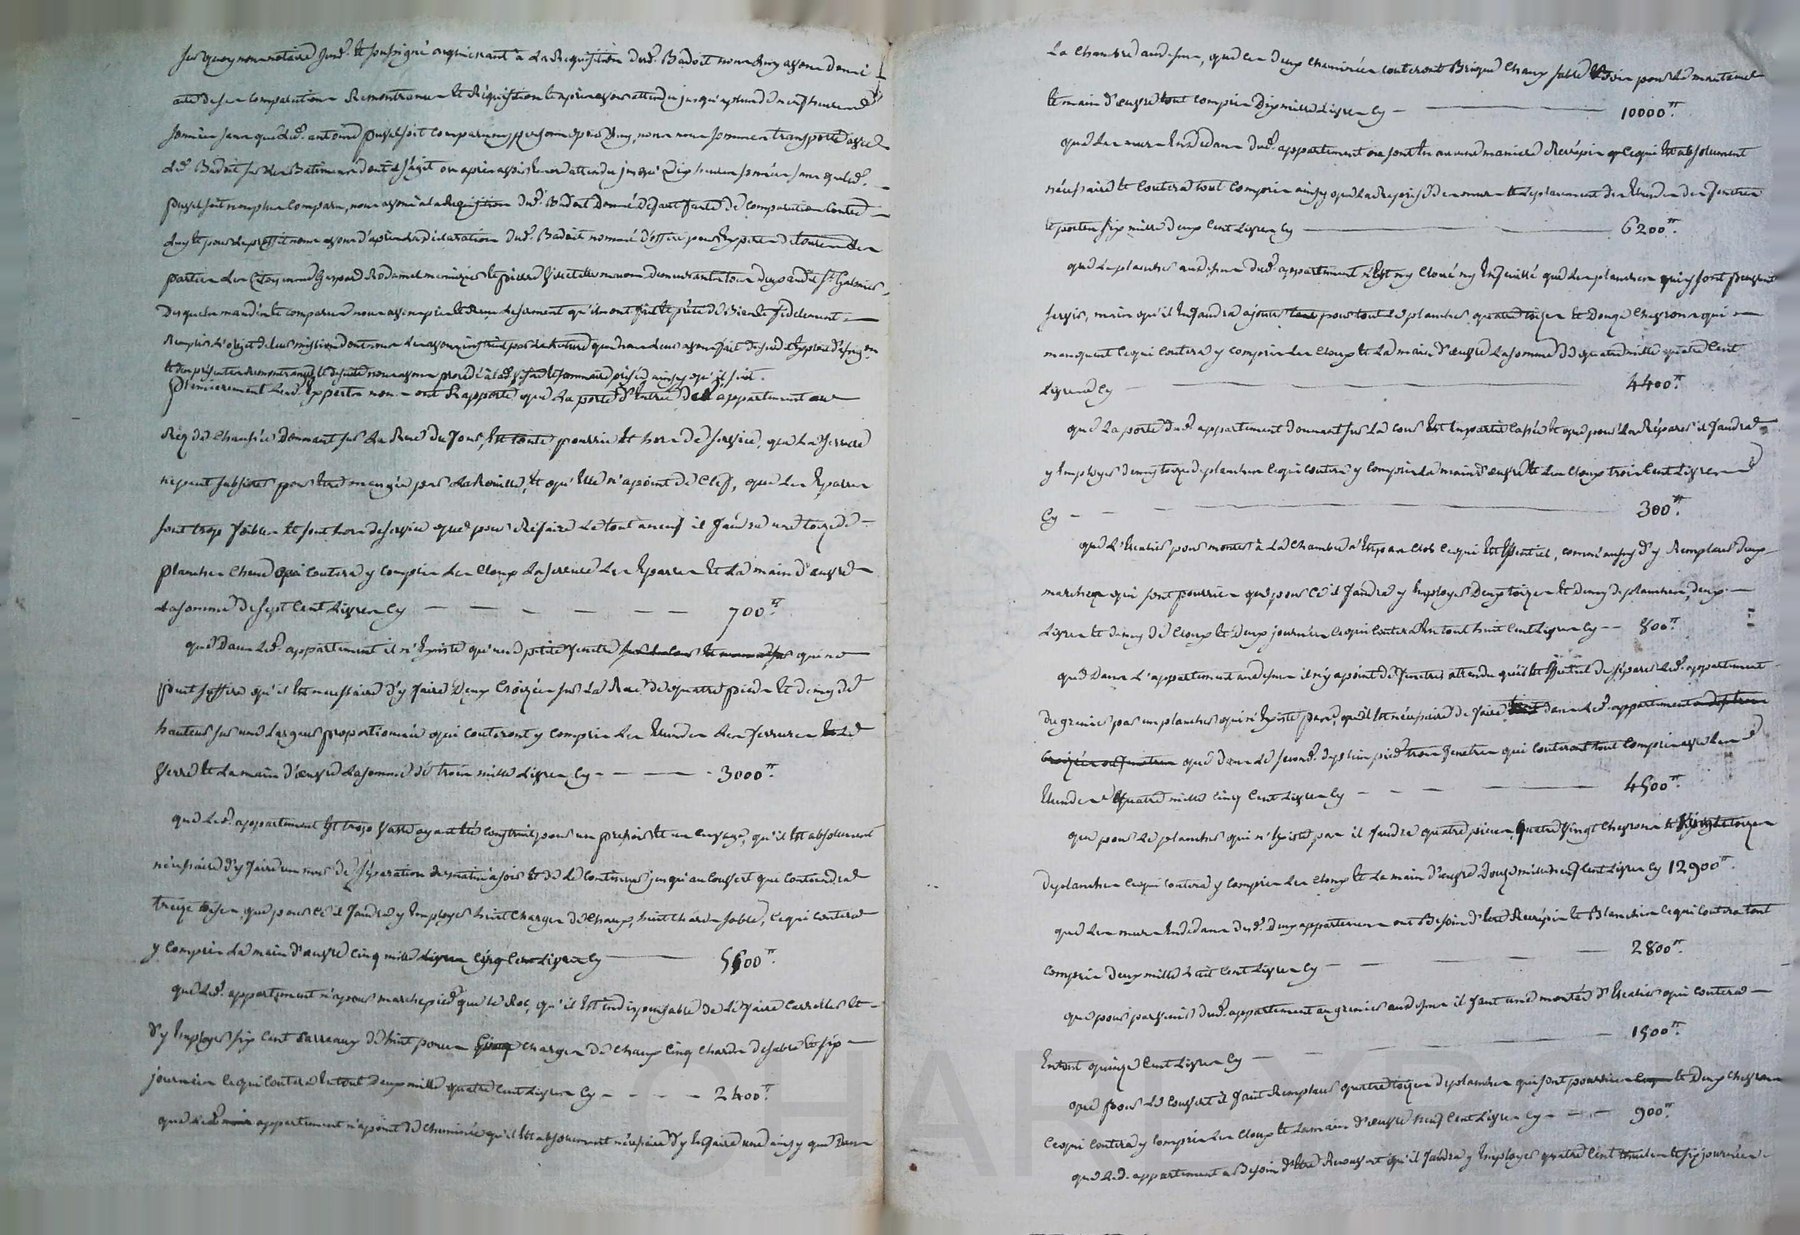 Sur quoy nous notaire Jur. et soussigné acquiescant à la Requisition dud. Badoit nous luy avons donné
acte de ses comparution Remontrances et Réquisition et après avoir attendu jusqu'à plus de neuf heures
sonnées sans que led. antoine soit comparu ny personne pour luy, nous nous sommes transporté avec
led. Badoit sur les Batiments dont s'agit ou après avoir Encor attendu jusqu'à Dix heures sonnées sans que led.
soit non plus comparu, nous avons à la Requisition dud. Badoit Donné défaut faute de comparution contre
luy et pour le proffit nous avons d'après les déclarations dud. Badoit nommé d'office pour Experts de toutes les
parties les Citoyens Gaspard Rodamel menuizier et pierre maçon demeurants tous deux audit St Galmier
Desquels mandés et comparus nous avons pris et Reçu le serment qu'ils ont fait et prêté de Bien et fidelement
Remplir l'objet de leur mission dont nous les avons instruit par la lecture que nous leur avons fait
et des présentes Remontrances et de suite nous avons procédé ainsy qu'il suit.
Premierement Lesd. Experts nous ont Rapporté que La porte d'Entrée de appartement au
Réz de Chaussée Donnant sur La Rue du four, Est toute pourrie et hors de service, que La serrure
ne peut subsister pour être mangée par La Rouille, et qu'Elle n'a point de Clef, que Les Eparres
sont trop foibles et sont hors de service que pour Réfaire Le tout à neuf il faudra une toize de
planches Chene qui coutera y compris Les Cloux La serrure Les Eparres Et La main d'œuvre
La somme de sept Cent Livres Cy — 700tt
que Dans Led. appartement il n'Existe qu'une petite fenetre qui ne
peut suffire qu'il Est necessaire d'y faire Deux Croizées sur La Rue de quatre pieds Et demy de
hauteur sur une Largeur proportionnée qui couteront y compris Les Les ferrures Le
verre Et La main d'œuvre La somme de trois mille Livres Cy — 3000tt
que Led. appartement Est trop vaste ayant été construit pour un pressoir et un cuvage, qu'il Est absolument
nécessaire d'y faire un mur de séparation et de Le continuer jusqu'au couvert que contiendra
treize toizes, que pour ce il faudra y Employer huit Charges de Chaux, huit Chars de sable, ce qui coutera
y compris La main d'œuvre Cinq mille Livres Cy — 5500tt
que Led. appartement n'a pour marchepied que le Roc, qu'il Est indispensable de Le faire Carreller et
d'y Employer six Cent Carreaux de huit pouces Charges de Chaux Cinq Chars de sable Et six
journées ce qui coutera En tout Deux mille quatre Cent Livres Cy — 2400tt
que Led. appartement n'a point de Cheminée qu'il Est absolument nécessaire d'y En faire une ainsy que Dans
La Chambre au dessus, que Les deux Cheminées couteront Brique Chaux sable Bois pour Le manteau
Et main d'œuvre tout compris Dix mille Livres Cy — 10000tt
que Les murs En dedans dud. appartement ne sont En aucune maniere Recrépis ce qui Est absolument
nécessaire Et Coutera tout Compris ainsy que La Reprise des murs Et placement des des fenetres
Et portes six mille deux Cent Livres Cy — 6200tt
que Le plancher au dessus dud. appartement n'Est ny Cloué ny que Les planches qui y sont peuvent
servir, mais qu'il En faudra ajouter pour tout Le plancher quatre toizes Et Douze Chevrons qui
manquent ce qui coutera y compris Les Cloux Et La main d'œuvre La somme de quatre mille quatre Cent
Livres Cy — 4400tt
que La porte dud. appartement donnant sur La cour Est En partie Cassée Et que pour La Réparer il faudra
y Employer demy toize de planches ce qui coutera y compris La main d'œuvre Et Les Cloux trois Cent Livres
Cy — 300tt
que L'Escalier pour monter à La Chambre n'Est pas Clos ce qui Est Essentiel, comm'aussy d'y Remplacer deux
marches qui sont pourries que pour ce il faudra y Employer Deux toizes Et demy de planches, deux
Livres Et demy de Cloux Et Deux journées ce qui coutera En tout huit Cent Livres Cy — 800tt
que Dans L'appartement au dessus il n'y a point de fenetres attendu qu'il Est Essentiel de séparer Led. appartement
du grenier par un plancher qui n'Existe pas, qu'il Est nécessaire de faire dans Led. appartement
que dans Le second trois fenetres qui couteront tout compris avec Les
quatre mille Cinq Cent Livres Cy — 4500tt
que pour Le plancher qui n'Existe pas il faudra quatre pieces, quatre vingt Chevrons Et toizes
de planches ce qui coutera y compris Les Cloux Et La main d'œuvre Douze mille neuf Cent Livres Cy 12900tt
que Les murs En dedans desd. Deux appartements ont Besoin d'Etre Recrépis Et Blanchis ce qui coutera tout
Compris deux mille huit Cent Livres Cy — 2800tt
que pour parvenir dud. appartement au grenier au dessus il faut une montée d'Escalier qui coutera
En tout quinze Cent Livres Cy — 1500tt
que pour Le Couvert il faut Remplacer quatre toizes de planches qui sont pourries Et Deux Chevrons
ce qui coutera y compris Les Cloux Et La main d'œuvre neuf Cent Livres Cy — 900tt
que Led. appartement a Besoin d'Etre Recouvert qu'il faudra y Employer quatre Cent tuiles Et six journées